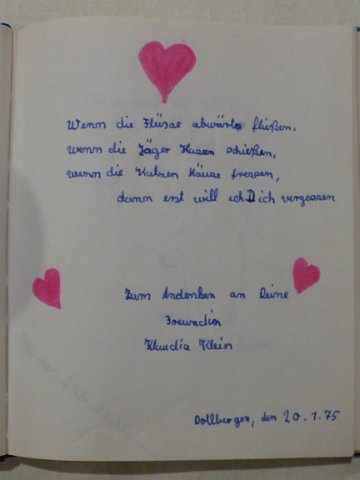 Wenn die Flüsse abwärts fließen,
wenn die Jäger Hasen schießen,
wenn die Katzen Mäuse fressen,
dann erst will ich Dich vergessen
Zum Andenken an Deine
Freundin
Klaudia Klein
Dollbergen, den 20.1.75